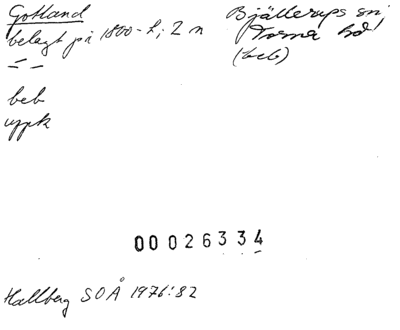 Gotland
Bjällerups sn
belagt på 1800-t; 2 n
Torna hd
(beb)
beb
uppk
00026334
Hallberg SOÅ 1976:82